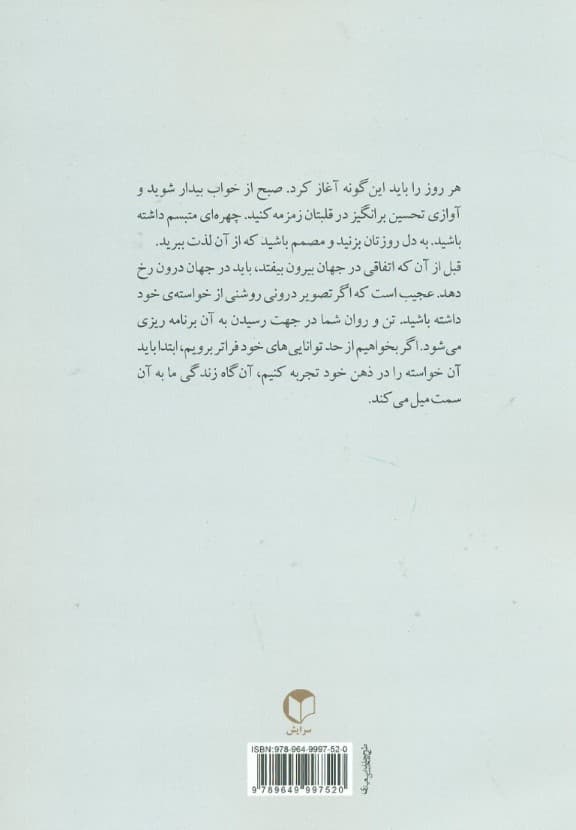 هر روز را باید این‌گونه آغاز کرد. صبح از خواب بیدار شوید و
آوازی تحسین برانگیز در قلبتان زمزمه کنید. چهره‌ای متبسم داشته
باشید. به دل روزتان بزنید و مصمم باشید که از آن لذت ببرید.
قبل از آن که اتفاقی در جهان بیرون بیفتد، باید در جهان درون رخ
دهد. عجیب است که اگر تصویر درونی روشنی از خواسته‌ی خود
داشته باشید. تن و روان شما در جهت رسیدن به آن برنامه ریزی
می‌شود. اگر بخواهیم از حد توانایی‌های خود فراتر برویم، ابتدا باید
آن خواسته را در ذهن خود تجربه کنیم، آن‌گاه زندگی ما به آن
سمت میل می‌کند.
سرایش
ISBN: 978-964-9997-52-0
9 789649 997520